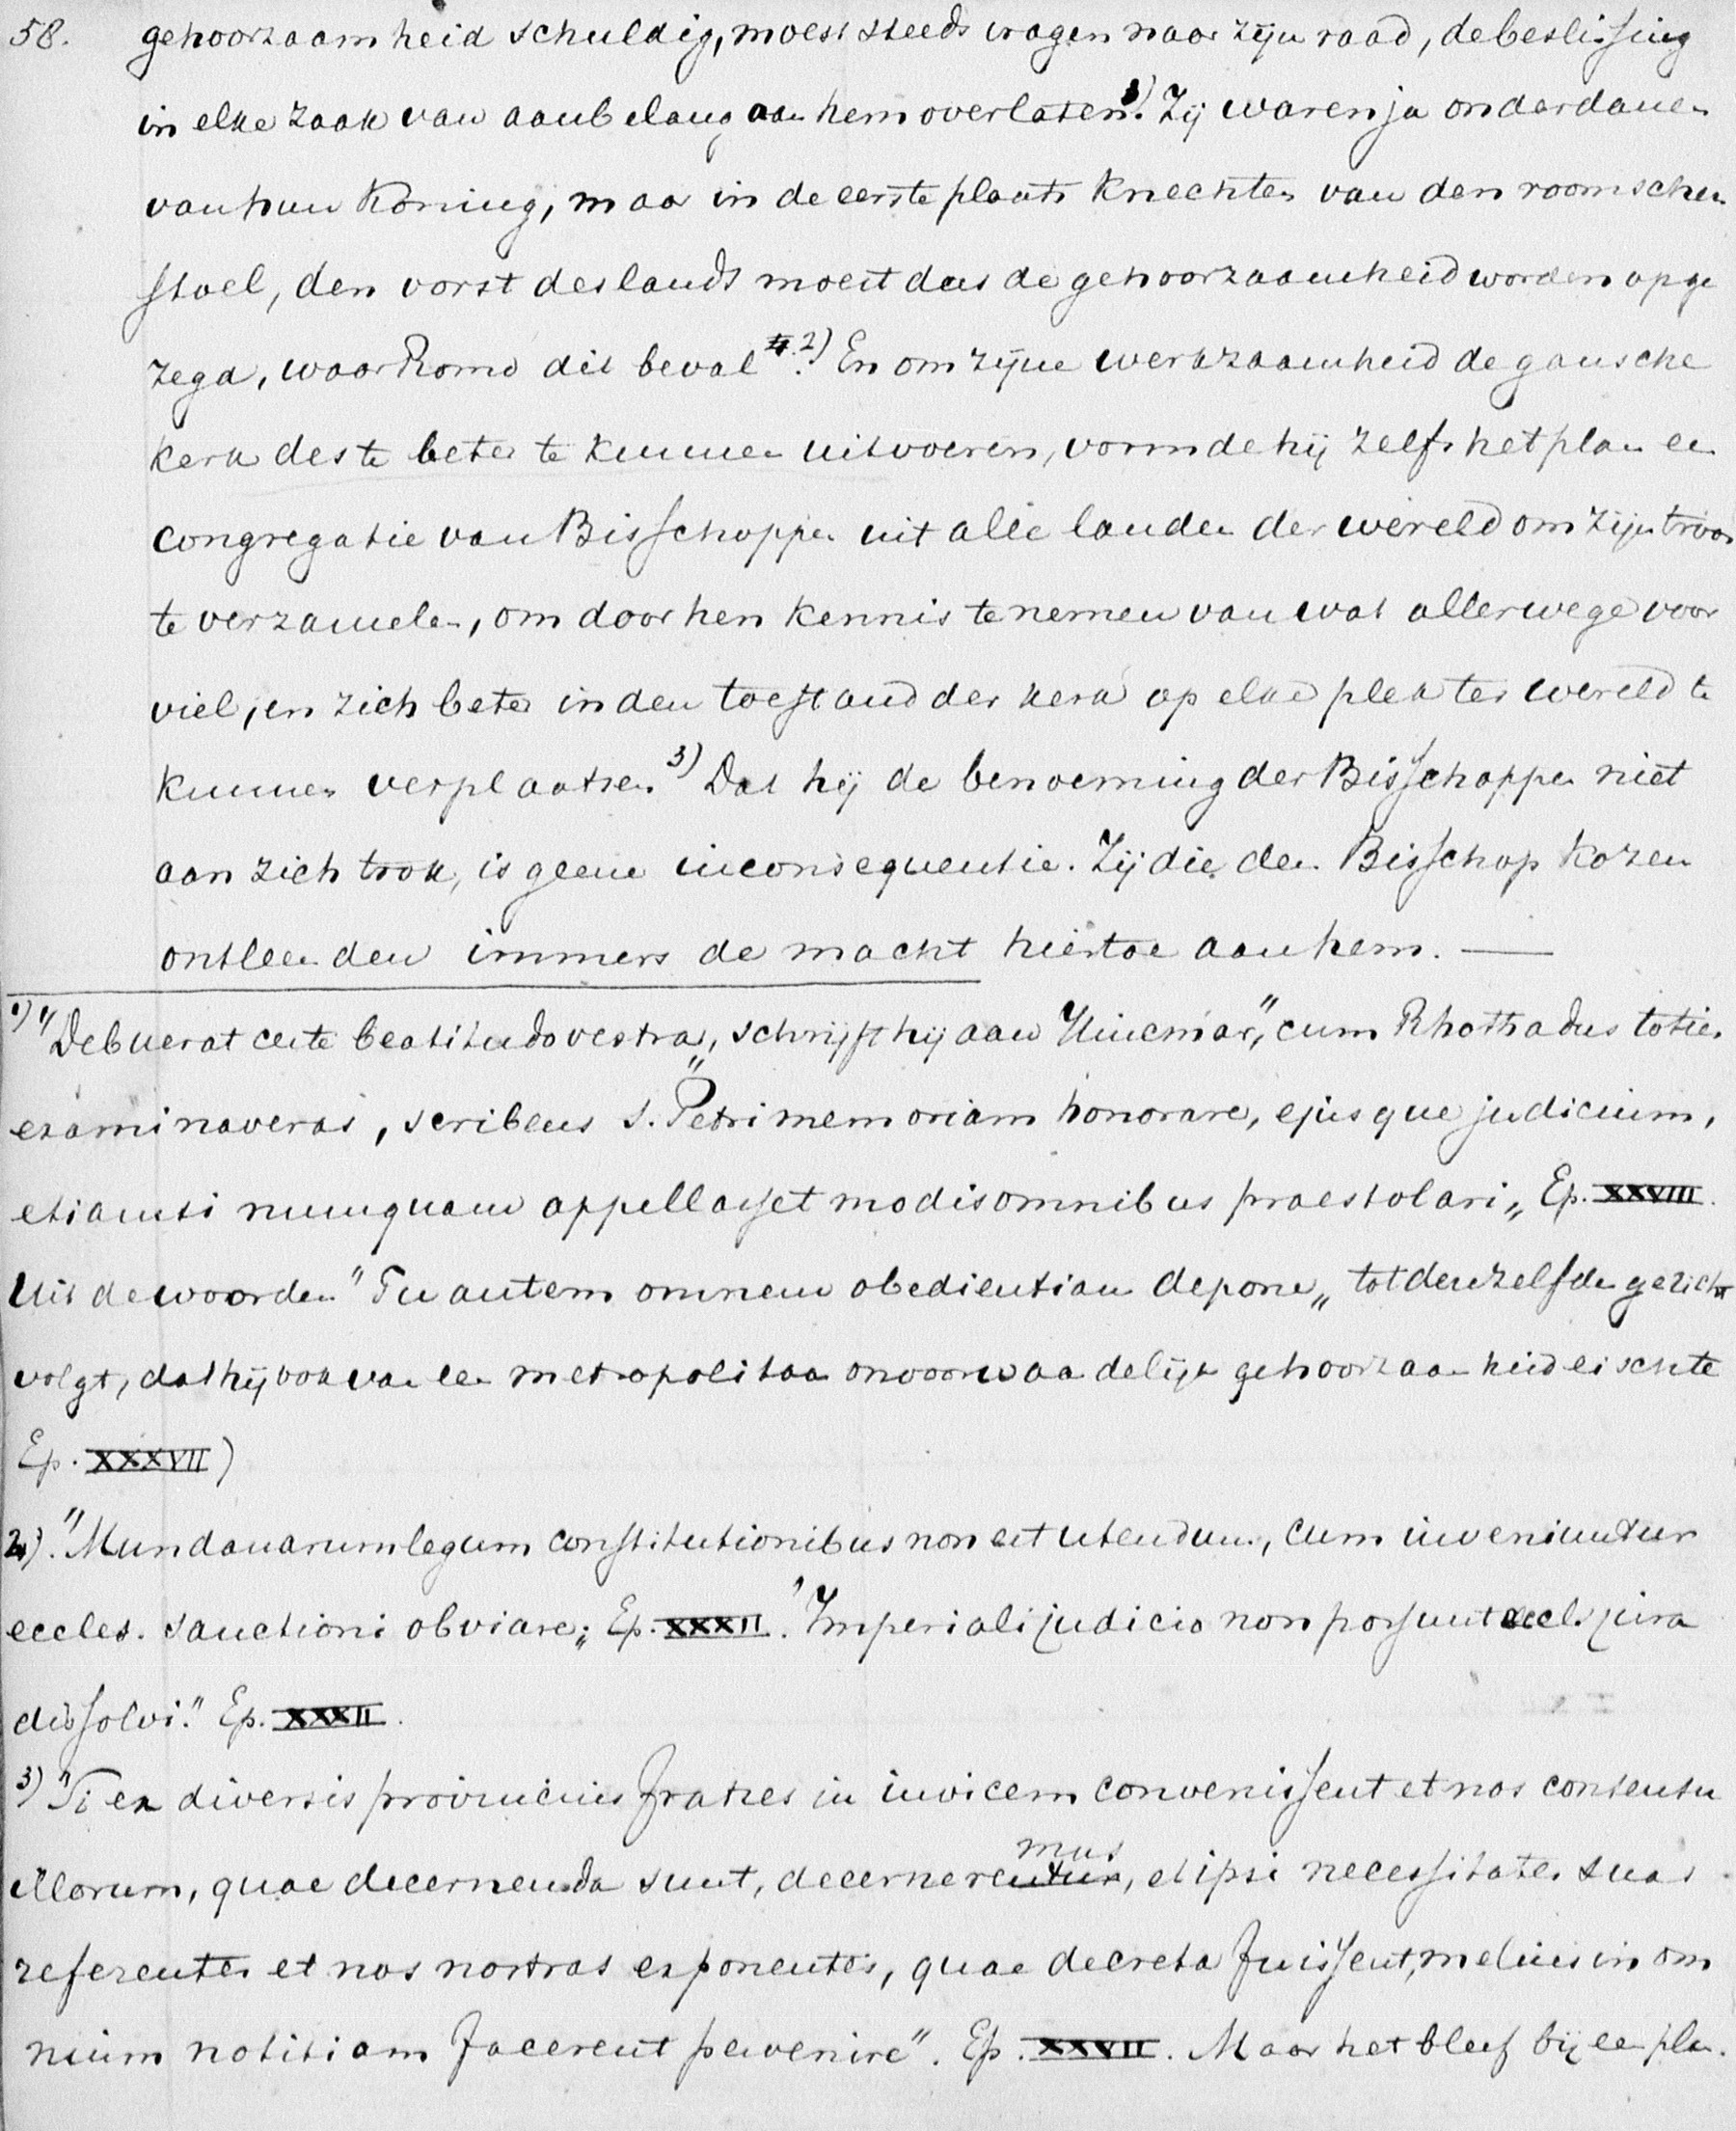 58. gehoorzaamheid schuldig, moest steeds vragen naar zijn raad, de beslissing
in elke zaak van aanbelang aan hem overlaten. 1) Zij waren ja onderdanen
van hun Koning, maar in de eerste plaats Knechten van den roomschen
stoel, den vorst des lands moest dus de gehoorzaamheid worden opge
zegd, waar Rome dit beval. 2) En om zijne werkzaamheid de gansche
kerk des te beter te kunnen uitvoeren, vormde hij zelfs het plan een
congregatie van Bisschoppen uit alle landen der wereld om zijn troon
te verzamelen, om door hen kennis te nemen van wat allerwege voor
viel, en zich beter in den toestand der kerk op elke plek ter wereld te
kunnen verplaatsen. 3) Dat hij de benoeming der Bisschoppen niet
aan zich trok, is geene inconsequentie. Zij die den Bisschop kozen
ontleenden immers de macht hiertoe aan hem. —
1) "Debuerat certe beatitudo vestra„, schrijft hij aan Hincmar, "cum Rhothadus toties
examinaveras, scribens S. Petri memoriam honorare, ejusque judicium,
etiamsi numquam appellasset modis omnibus praestolari„ Ep. XXVIII.
Uit de woorden "Tu autem omnem obedientiam depone„ tot denzelfden gericht
volgt, dat hij ook van een metropolitaan onvoorwaardelijk gehoorzaamheid eischte
Ep. XXXVII)
2). "Mundanarum legum constitutionibus non est utendum, cum inveniuntur
eccles. sanctioni obviare„ Ep. XXXII. "Imperiali judicio non possunt eccl. jura
dissolvi." Ep. XXXII.
3) "Si ex diversis provinciis fratres in invicem convenissent et nos consensu
illorum, quae decernenda sunt, decerneremus, et ipsi necessitates suas
referentes et nos nostras exponentes, quae decreta fuissent, melius in om
nium notitiam facerent pervenire". Ep. XXVII. Maar het bleef bij een plan.